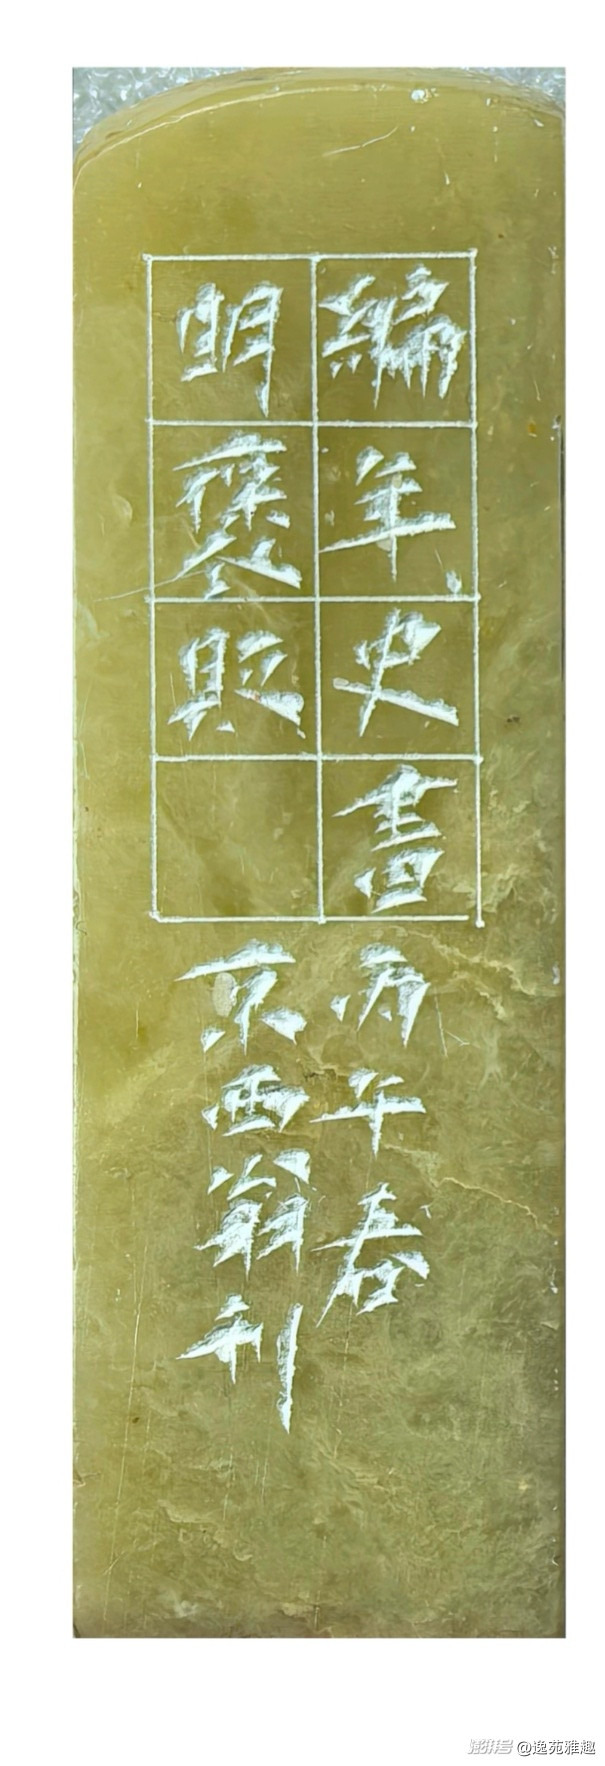 編年史書
明褒貶
丙午春
京西翁刊
澎湃号 @逸苑雅趣